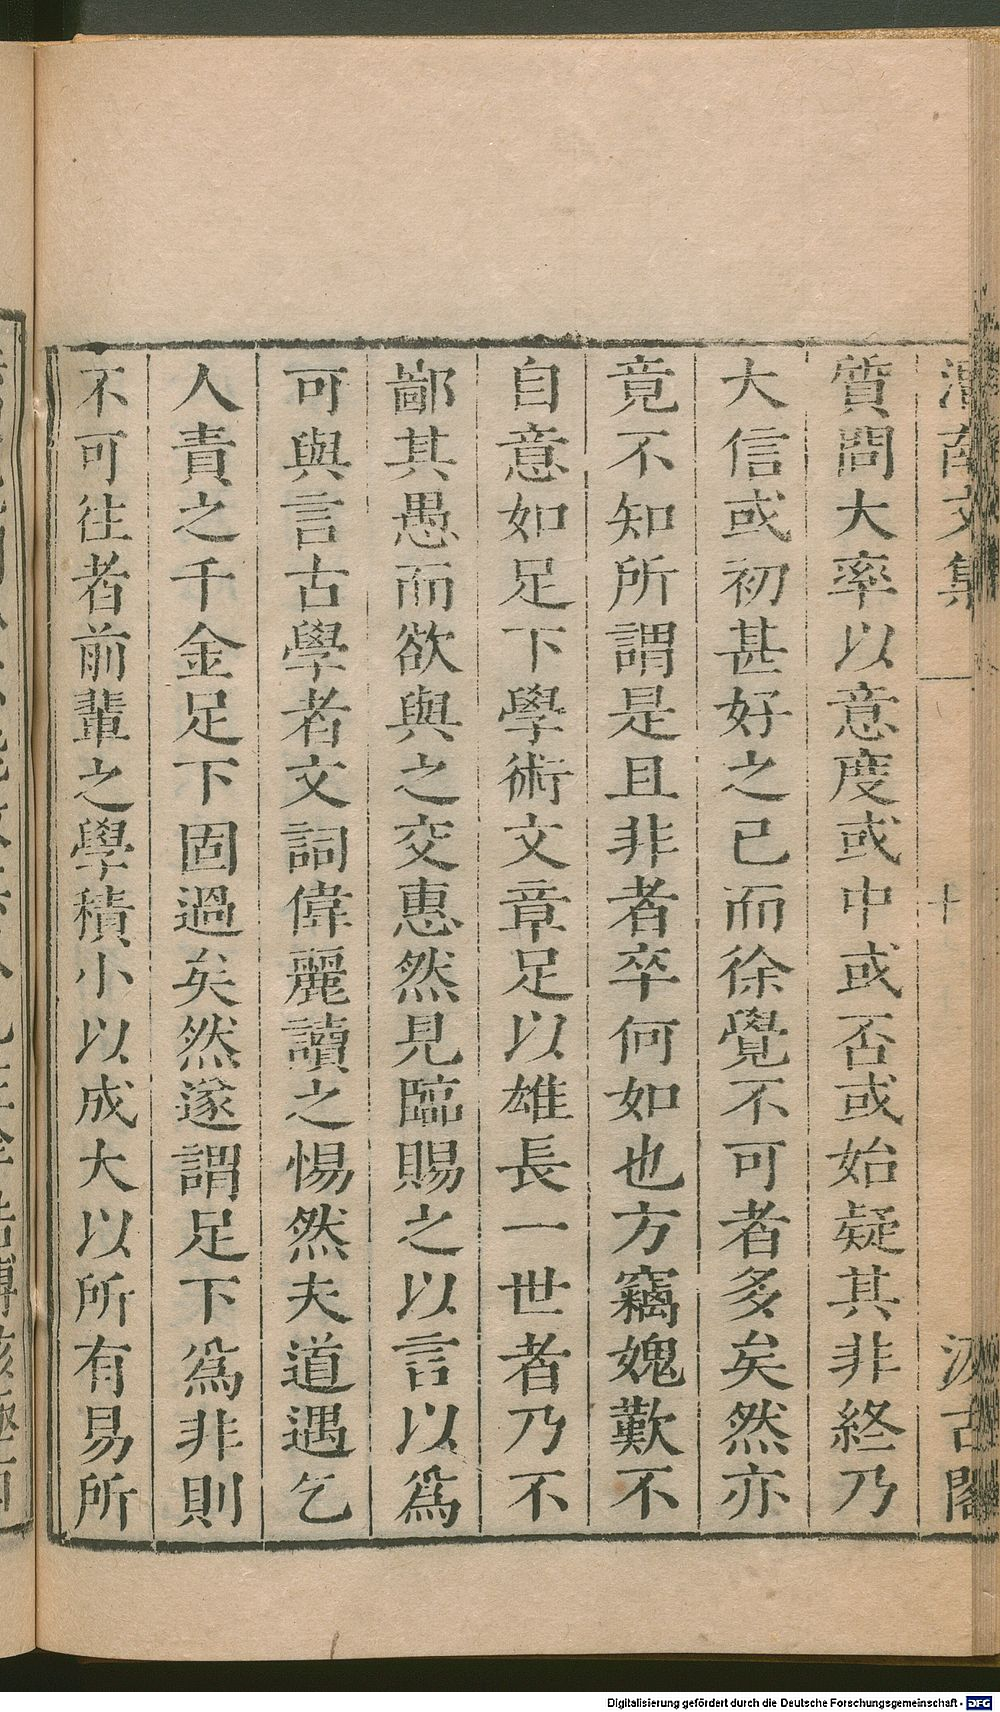 渭南文集 十 汲古閣
質問大率以意度或中或否或始疑其非終乃
大信或初甚好之已而徐覺不可者多矣然亦
竟不知所謂是且非者卒何如也方竊媿歎不
自意如足下學術文章足以雄長一世者乃不
鄙其愚而欲與之交惠然見臨賜之以言以爲
可與言古學者文詞偉麗讀之惕然夫道遇乞
人責之千金足下固過矣然遂謂足下爲非則
不可往者前輩之學積小以成大以所有易所
Digitalisierung gefördert durch die Deutsche Forschungsgemeinschaft - DFG